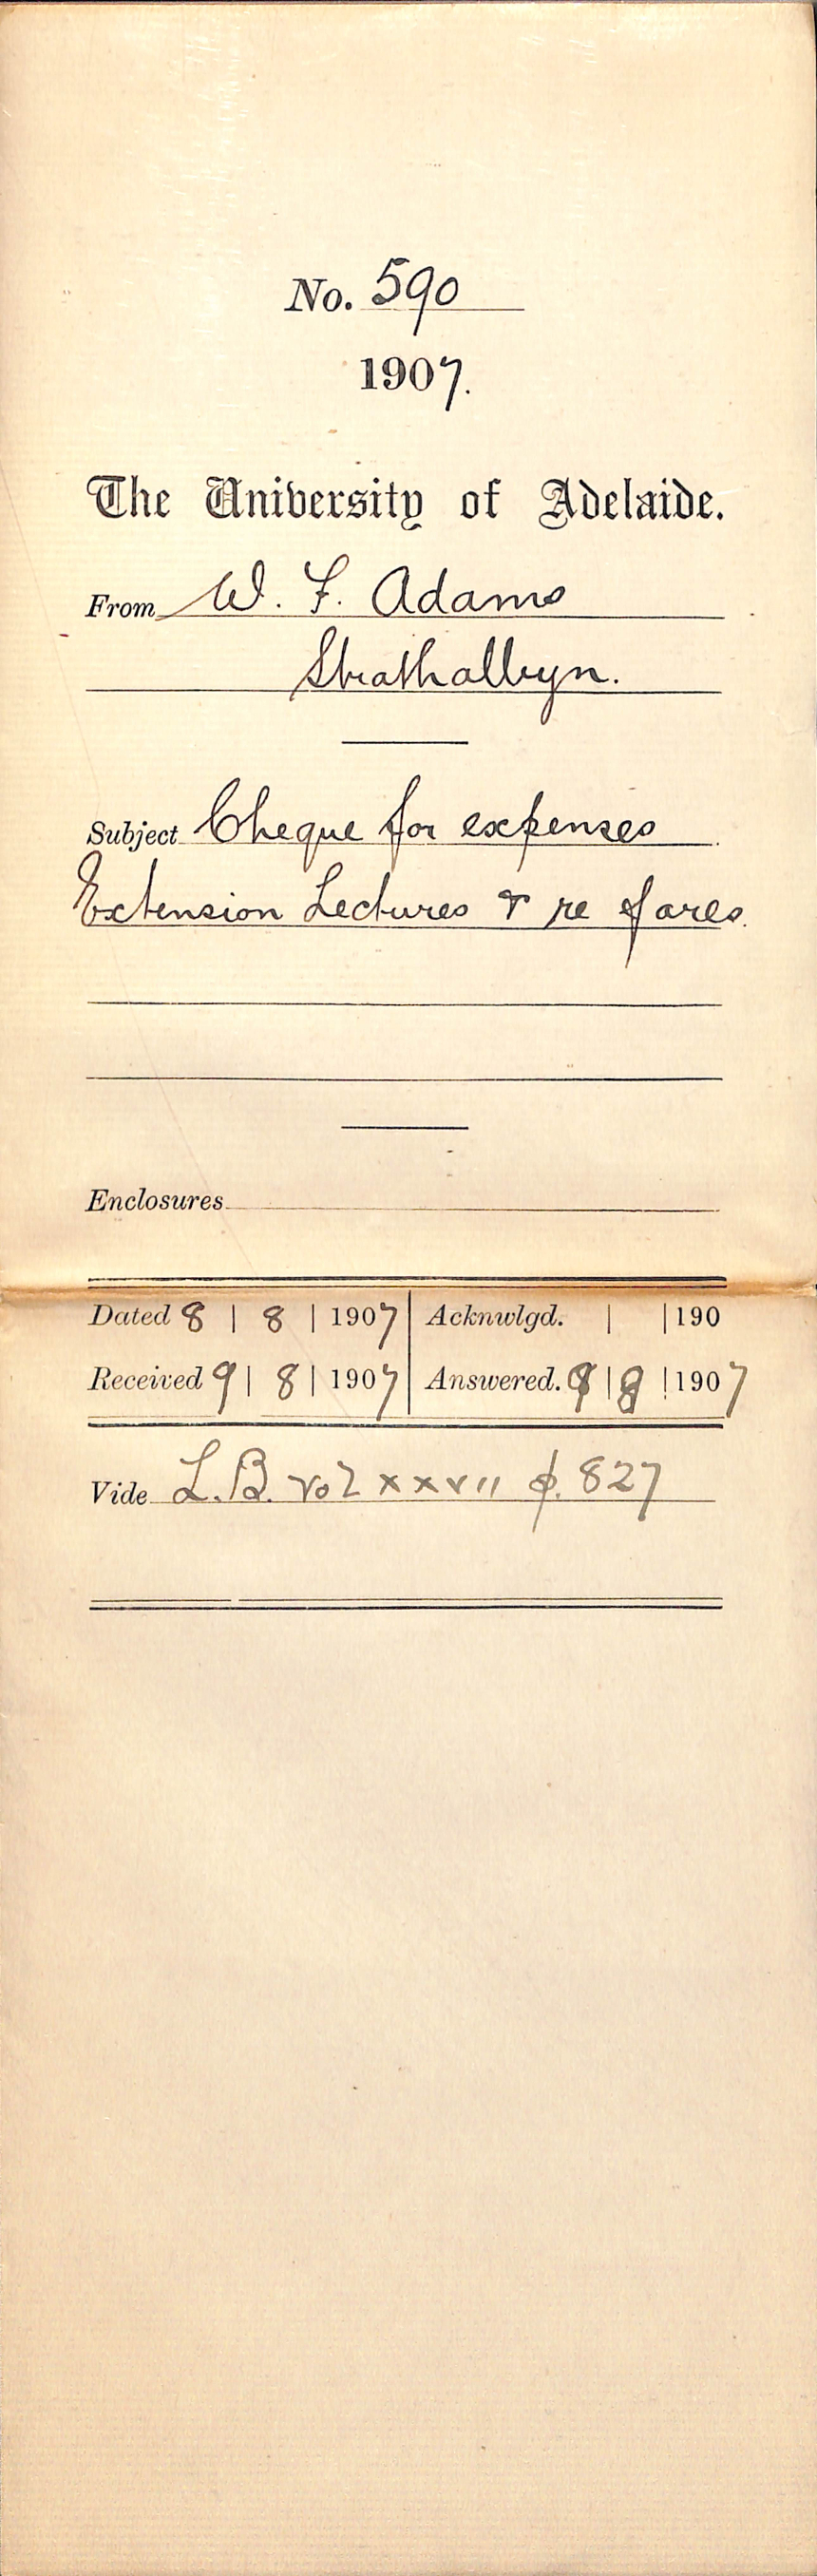 No. 590
1907.
The University of Adelaide.
From W. F. Adams
Strathalbyn.
Subject Cheque for expenses
Extension Lectures & re fares.
Enclosures
Dated 8 | 8 | 1907 Acknwlgd. | | 190
Received 9 | 8 | 1907 Answered. 9 | 8 | 1907
Vide L.B. Vol xxvii p. 827